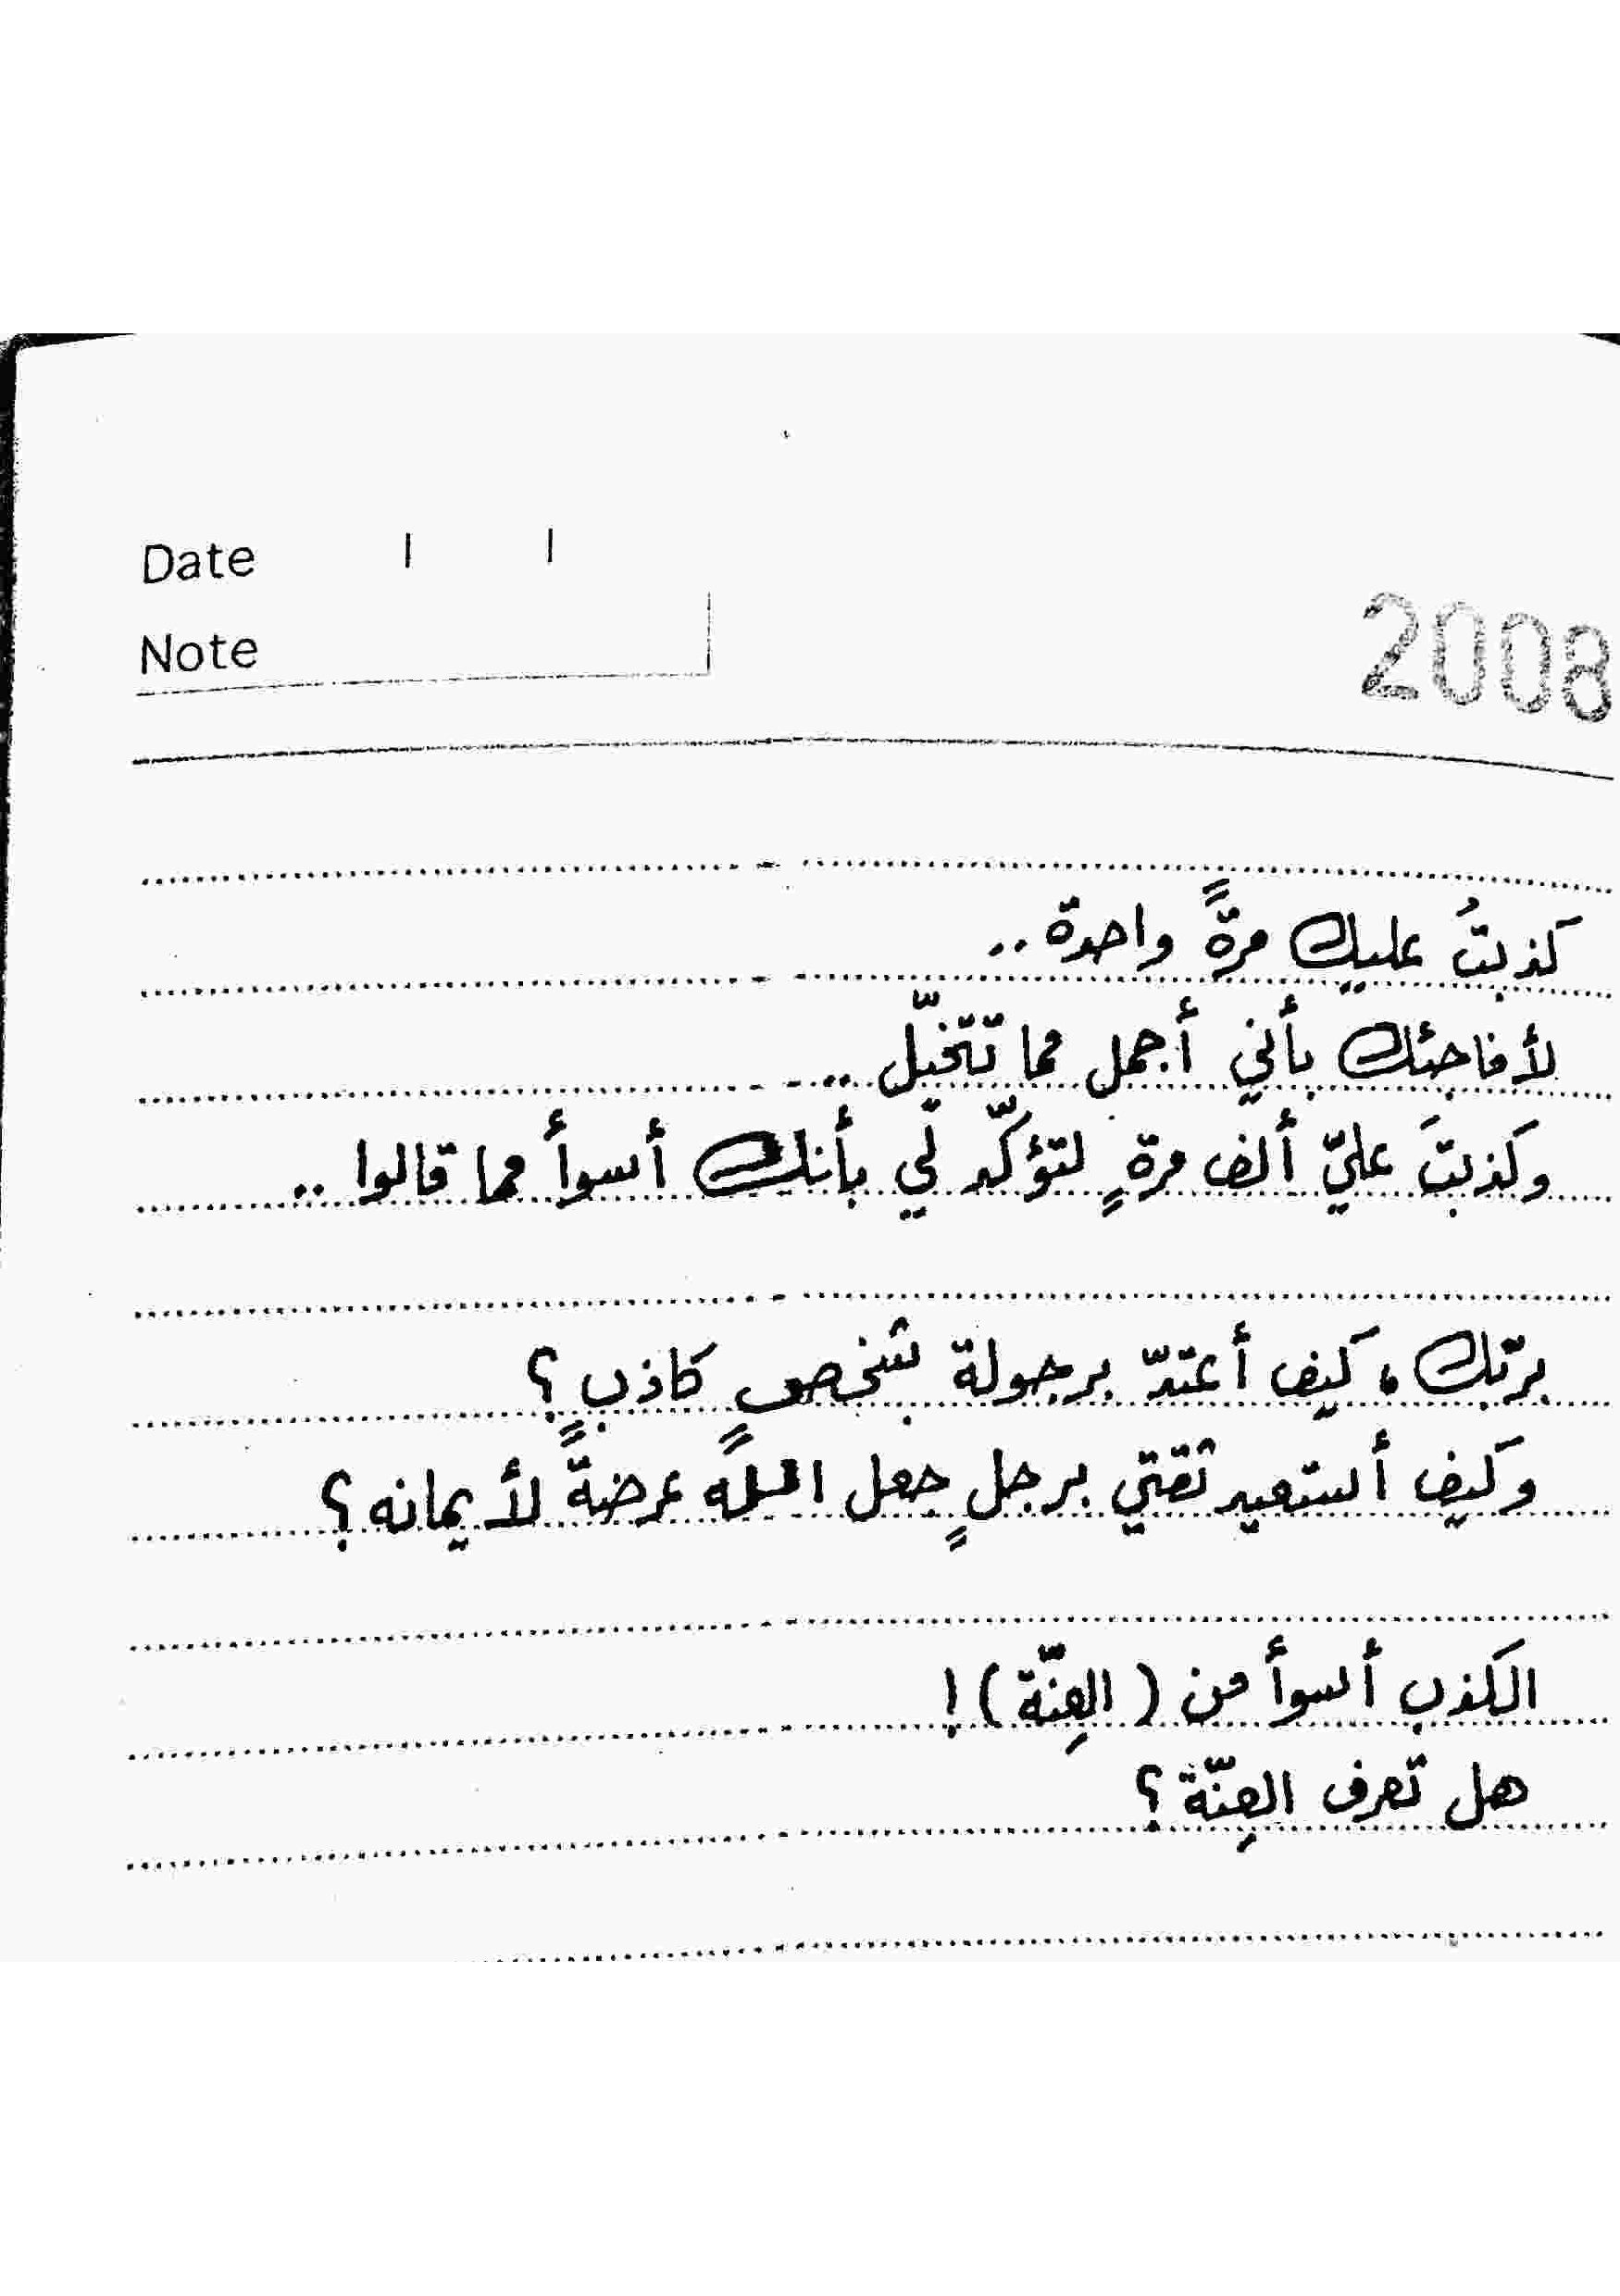 Date / /
Note
2008
كذبتُ عليك مرةً واحدة ..
لأفاجئك بأني أجمل مما تتخيّل ..
وكذبتَ عليّ ألف مرةٍ لتؤكّد لي بأنك أسوأ مما قالوا ..
بربّك ، كيف أعتدّ برجولة شخصٍ كاذبٍ ؟
وكيف أستعيد ثقتي برجلٍ جعل الله عرضةً لأيمانه ؟
الكذب أسوأ من ( العِنّة ) !
هل تعرف العِنّة ؟